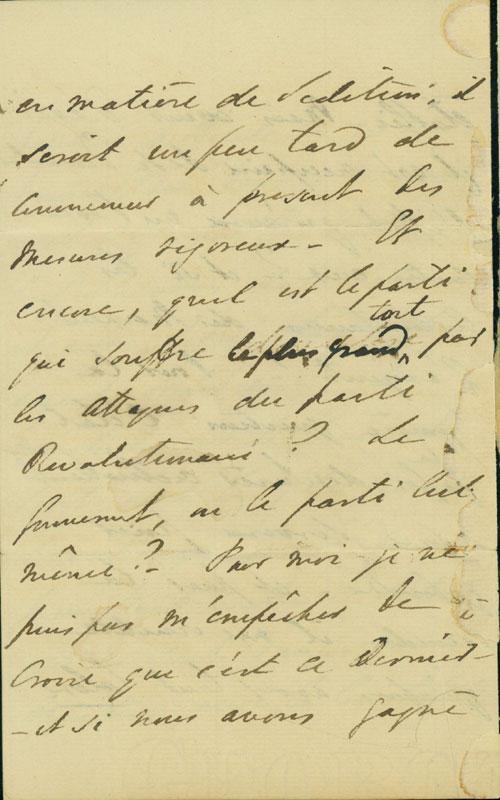 en matière de Sedition, il
seroit un peu tard de
commencer à present des
mesures rigoreux - Et
encore, quel est le parti
qui souffre le plus grand tort par
les attaques du parti
Revolutionnaire ? Le
Gouvernment, ou le parti lui
même ? - Pour moi je ne
puis pas m'empêcher de
croire que c'est ce Dernier -
- et si nous avons gagné